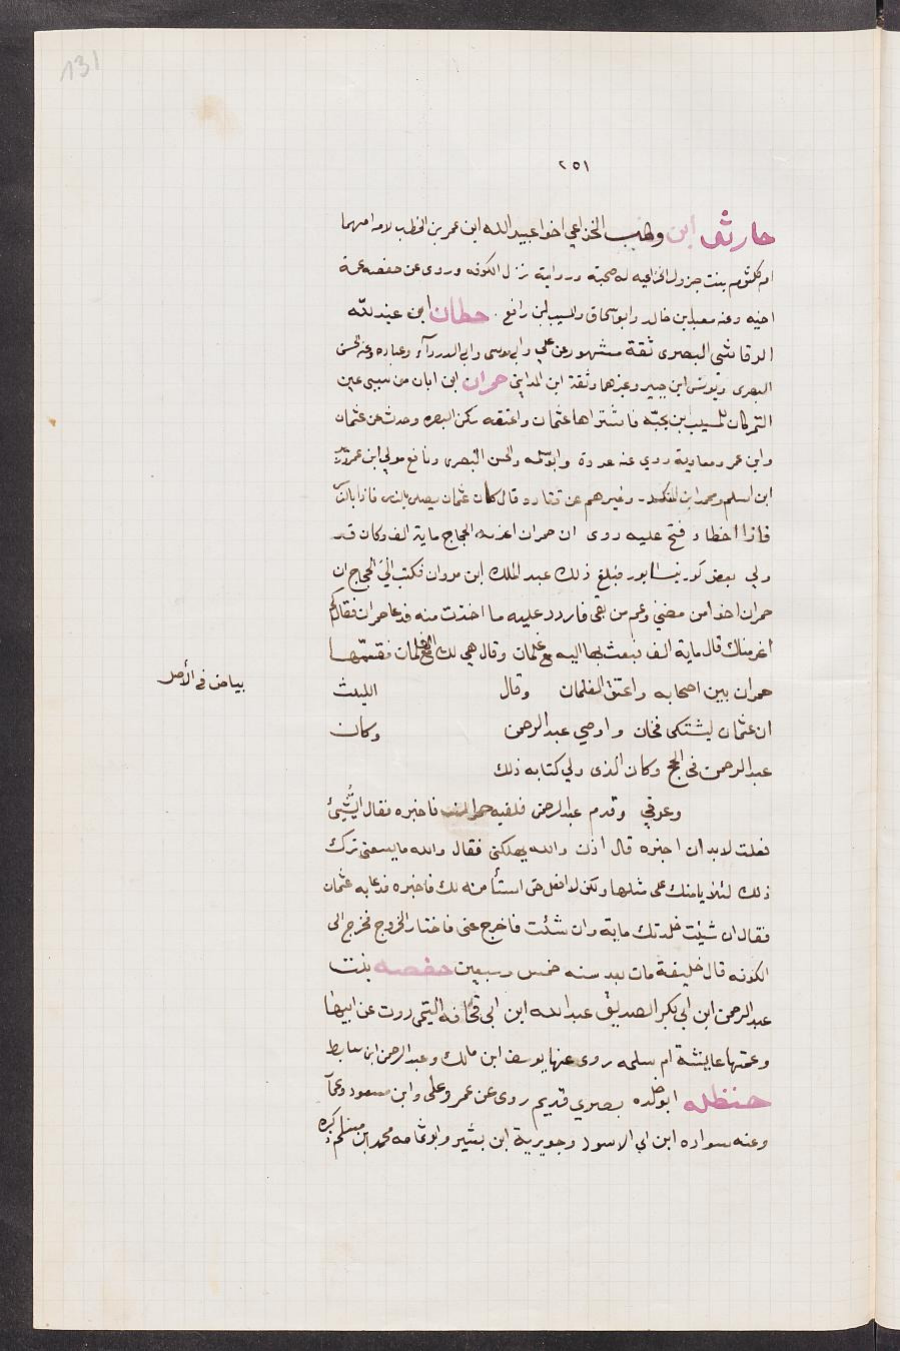 131
٢٥١
حارثه ابن وهب الخزاعي اخو عبيد الله ابن عمر بن الخطاب لامه امهما
ام كلثوم بنت جرول الخزاعيه له صحبة ورواية نزل الكوفه وروى عن حفصه
اخيه وعنه معبد ابن خالد وابو اسحاق والمسيب ابن رافع . حطان ابن عبد الله
الرقاشى البصرى ثقة مشهور عن علي وابي موسى وابي الدردآء وعباده وعنه الحسن
البصرى ويونس ابن جبير وغيرهما وثقة ابن المدايني حمران ابن ابان من سبى عين
التمر كان للمسيب ابن نجبة فاشتراها عثمان واعتقه سكن البصره وحدث عن عثمان
وابن عمر ومعاوية روي عنه عروة وابو سلمه والحسن البصرى ونافع مولى ابن عمر
ابن اسلم ومحمد ابن المنكدر وغيرهم عن قتادة قال كان عثمان يصلى بالناس
فاذا اخطا فتح عليه روى ان حمران اغرمه الحجاج ماية الف وكان قد
ولي بعض كور نيسابور فبلغ ذلك عبد الملك ابن مروان فكتب الى الحجاج ان
حمران اخو من مضى وعم من بقى فاردد عليه ما اخذت منه فدعا حمران فقال كم
اغرمناك قال ماية الف فبعث بها اليه مع غلمان وقال هي لك مع الغلمان فقسمها
حمران بين اصحابه واعتق الغلمان وقال الليث
بياض في الأصل
ان عثمان ليشتكى فخان واوصي عبد الرحمن وكان
عبد الرحمن فى الحج وكان الذى ولي كتابه ذلك
وعوفي وقدم عبد الرحمن فلقيه حمران فاخبره فقال
فعلت لابد ان اخبره قال اذن والله يهلكنى فقال والله ما يسعنى ترك
ذلك لئلا يامنك على مثلها ولكن لا افعل حتى استأمنه لك فاخبره فدعا به عثمان
فقال ان شئت جلدتك ماية وان شئت فاخرج عنى فاختار الخروج فخرج الى
الكوفه قال خليفة مات بعد سنه خمس وسبعين حفصه بنت
عبد الرحمن ابن ابي بكر الصديق عبد الله ابن ابى قحافه التيمى روت عن ابيها
وعمتها عايشة ام سلمه روى عنها يوسف ابن مالك وعبد الرحمن ابن سابط
حنظله ابو خلده بصري قديم روى عن عمر وعلى وابن مسعود
وعنه سواده ابن ابي الاسود وجويرية ابن بشير وابو ثمامه محمد ابن مسلم ذكره